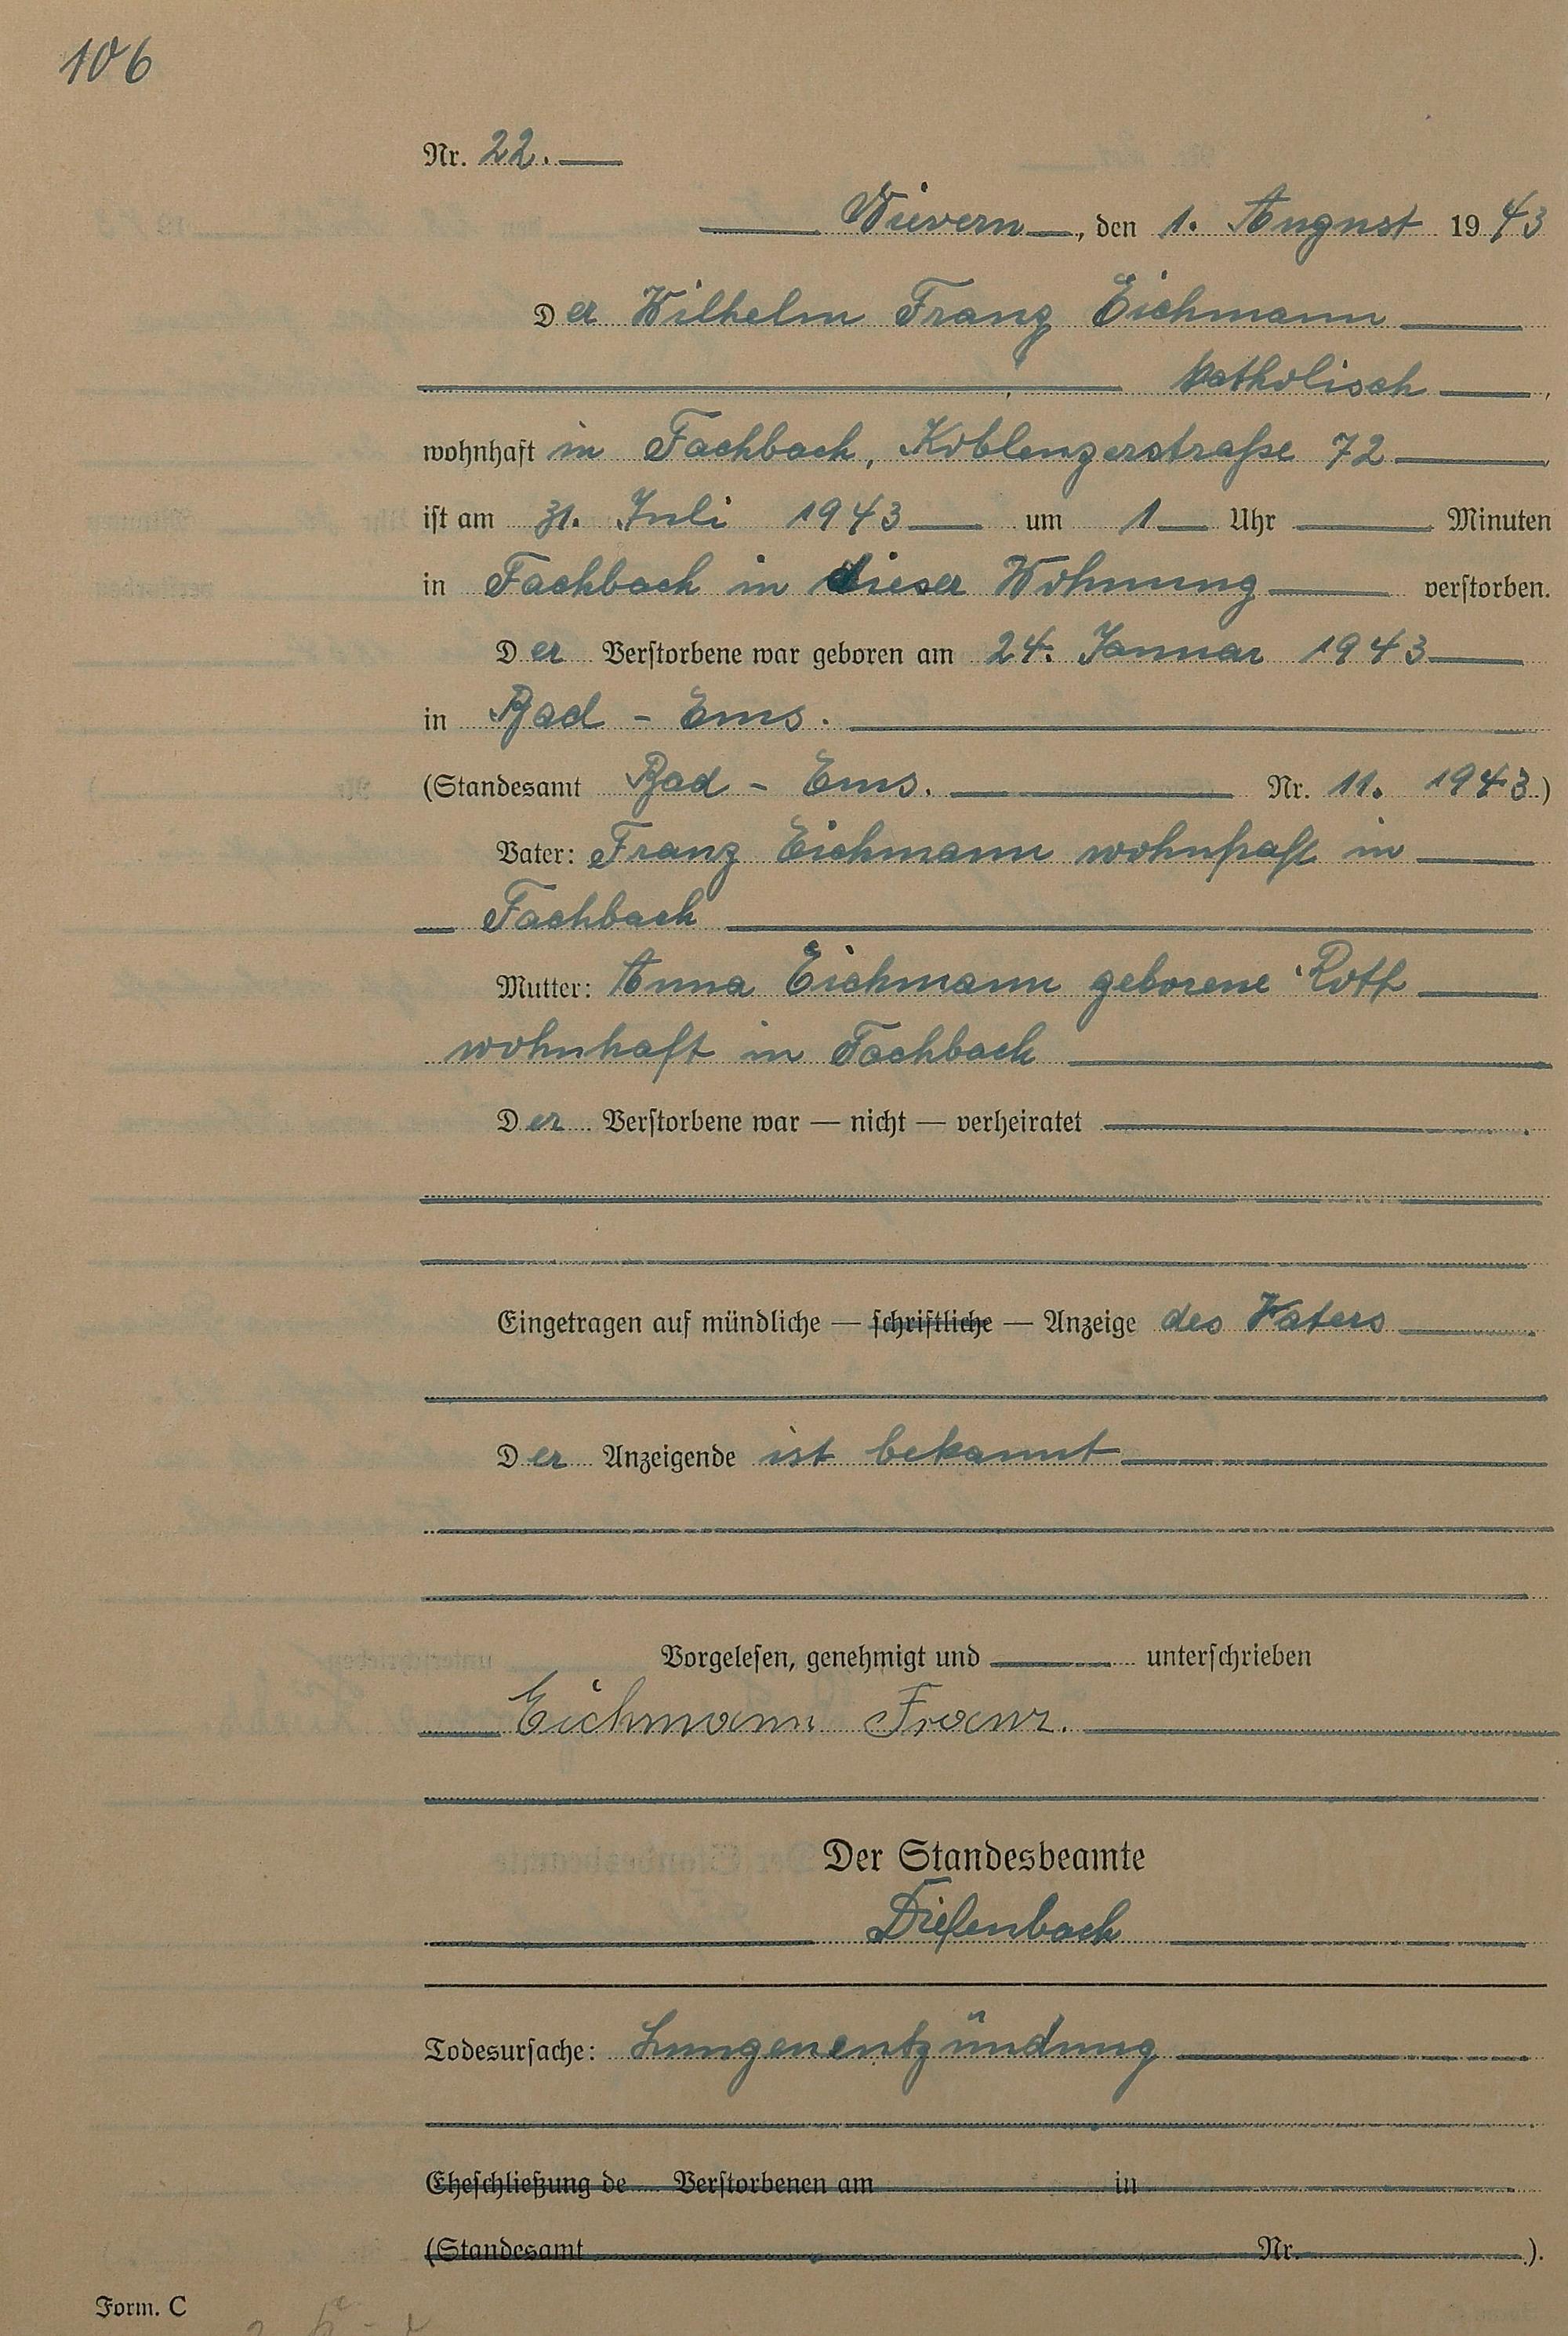 106
Nr. 22.
Nievern, den 1. August 1943
Der Wilhelm Franz Eichmann
katholisch,
wohnhaft in Fachbach, Koblenzerstraße 72
ist am 31. Juli 1943 um 1 Uhr Minuten
in Fachbach in dieser Wohnung verstorben.
Der Verstorbene war geboren am 24. Januar 1943
in Bad - Ems.
(Standesamt Bad - Ems. Nr. 11. 1943.)
Vater: Franz Eichmann wohnhaft in
Fachbach
Mutter: Anna Eichmann geborene Roth
wohnhaft in Fachbach
Der Verstorbene war — nicht — verheiratet
Eingetragen auf mündliche — schriftliche — Anzeige des Vaters
Der Anzeigende ist bekannt
Vorgelesen, genehmigt und unterschrieben
Eichmann Franz.
Der Standesbeamte
Diefenbach
Todesursache: Lungenentzündung
Eheschließung de Verstorbenen am in
(Standesamt Nr. ).
Form. C